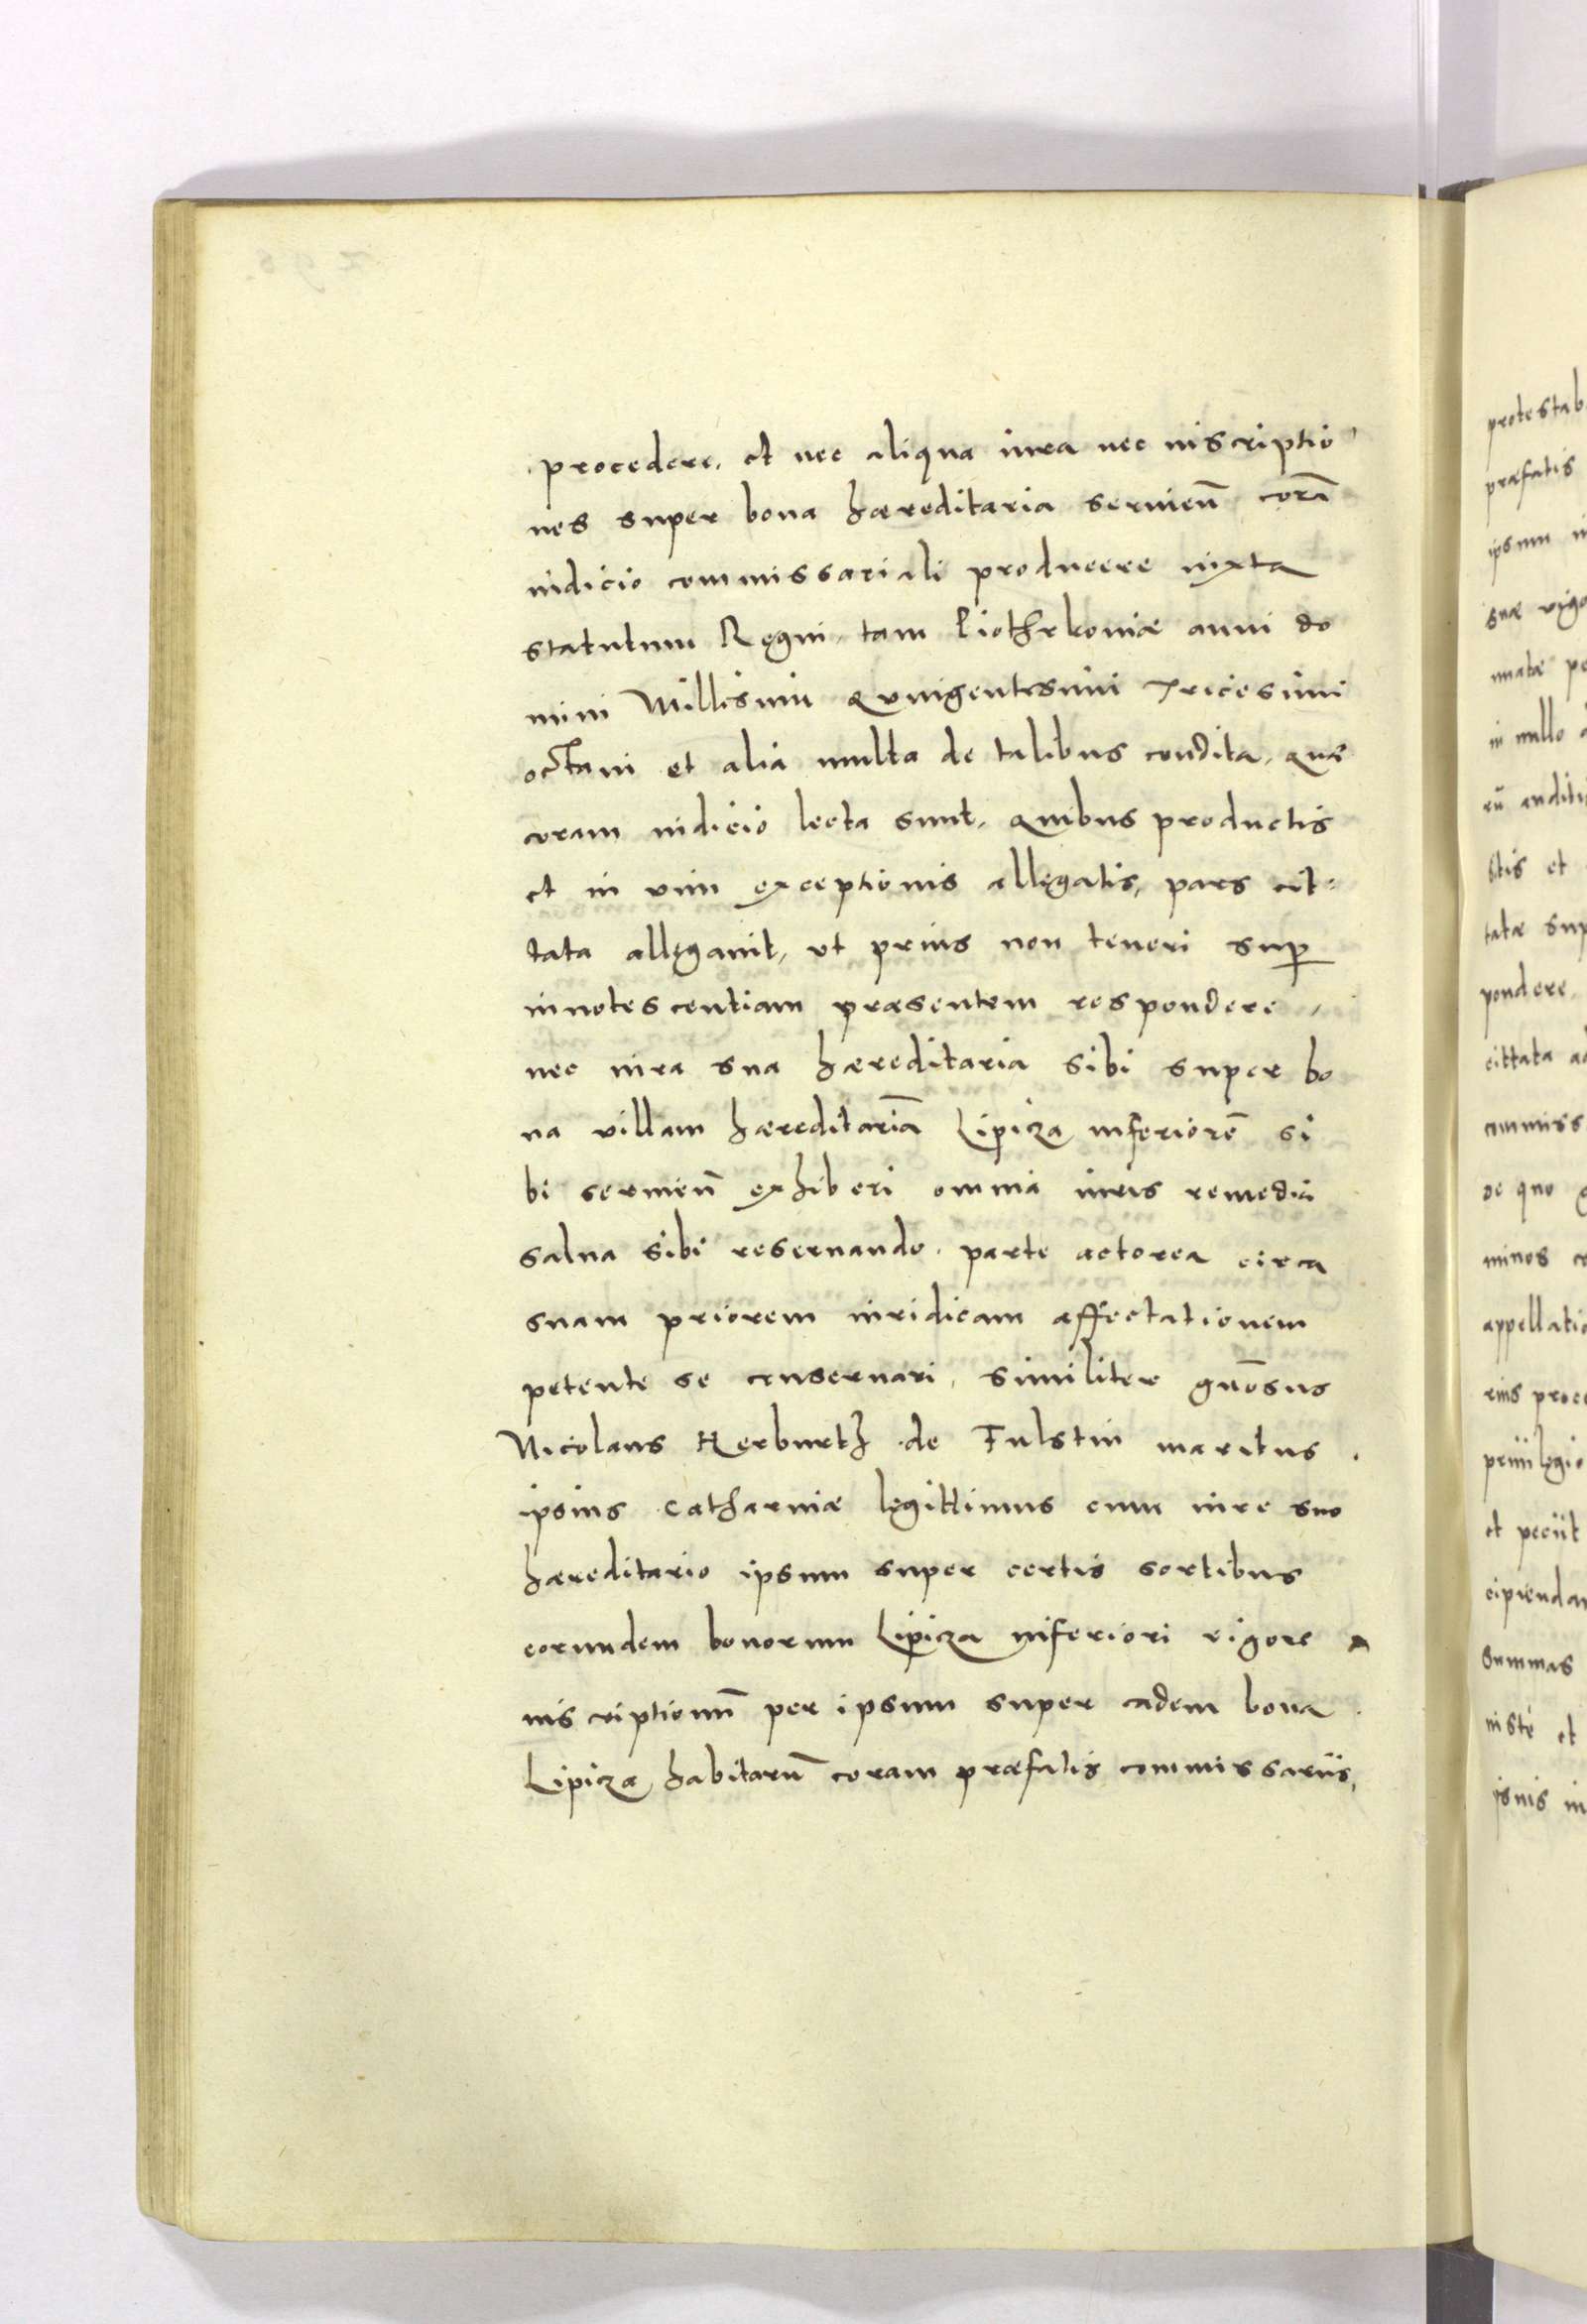 procedere, et nec aliqua iura nec inscriptio
nes super bona hæreditaria servieñ corā
iudicio commissariali producere iuxta
statutum Regni, tam Piothrkoviæ anni do
mini Millesimi Quingentesimi Tricesimi
octavi et alia multa de talibus condita, quæ
coram iudicio lecta sunt, quibus productis
et in vim exceptionis allegatis, pars cit=
tata allegavit, ut prius non teneri sup
innotescentiam præsentem respondere,
nec iura sua hæreditaria sibi super bo
na villam hæreditariā Lipicza inferiorē si
bi servieñ exhiberi omnia iuris remedia
salva sibi reservando, parte actorea circa
suam priorem iuridicam affectationem
petente se conservari, similiter gñosus
Nicolaus Herburth de Fulstin maritus
ipsius Catharinæ legittimus cum iure suo
hæreditario ipsum super certis sortibus
eorundem bonorum Lipicza inferiori vigore
inscriptionū per ipsum super eadem bona
Lipicza habitarū coram præfatis commissariis,
protestab
præfatis
ipsum
suæ vigo
in nullo
rū auditi
tatæ sup
pondere
cittata
commiss
de quo
minos
appellatio
rius proce
privilegio
et peciit
cipienda
summas
iste et